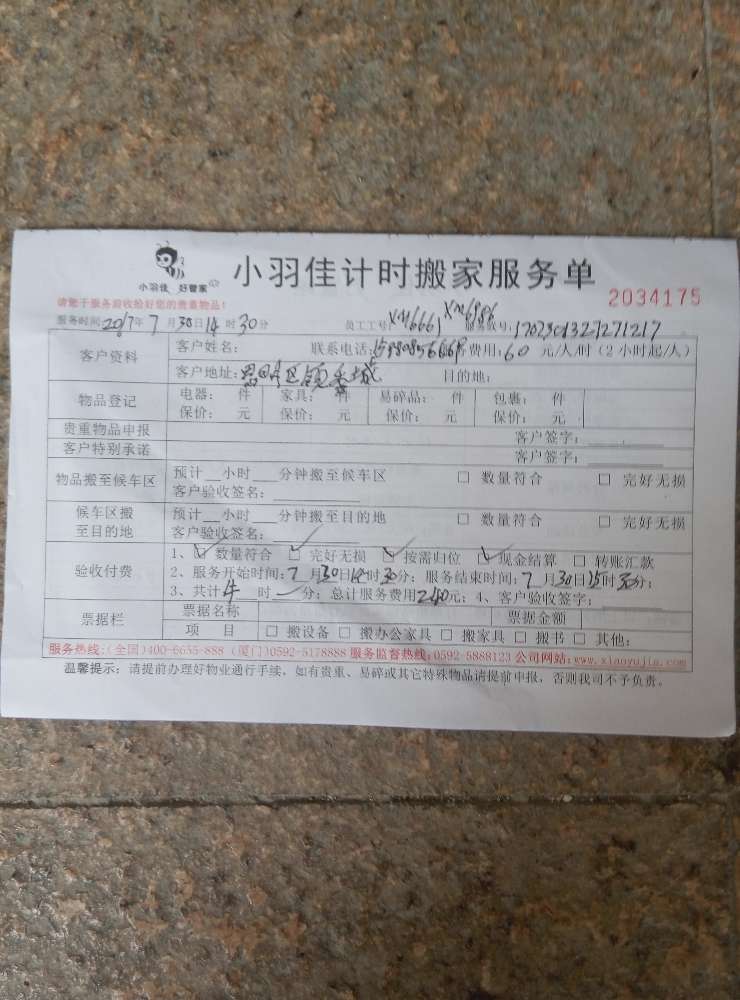 小羽佳 好管家
小羽佳计时搬家服务单
2034175
请您于服务前收拾好您的贵重物品!
服务时间:2017年7月30日14时30分 员工工号:XM6661 XM6986 服务单号:17073013271271217
客户资料 客户姓名: 联系电话: 费用:60 元/人/时(2小时起/人)
客户地址: 目的地:
物品登记 电器: 件 家具: 件 易碎品: 件 包裹: 件
保价: 元 保价: 元 保价: 元 保价: 元
贵重物品申报 客户签字:
客户特别承诺 客户签字:
物品搬至候车区 预计__小时___分钟搬至候车区 □ 数量符合 □ 完好无损
客户验收签名:
候车区搬至目的地 预计__小时___分钟搬至目的地 □ 数量符合 □ 完好无损
客户验收签名:
验收付费 1、☑ 数量符合 ☑ 完好无损 ☑ 按需归位 ☑ 现金结算 □ 转账汇款
2、服务开始时间:7月30日14时30分; 服务结束时间:7月30日15时30分;
3、共计4时—分; 总计服务费用240元; 4、客户验收签字:
票据栏 票据名称 票据金额
项 目 □ 搬设备 □ 搬办公家具 □ 搬家具 □ 搬书 □ 其他:
服务热线:(全国)400-6655-888 (厦门)0592-5178888 服务监督热线:0592-5888123 公司网站:www.xiaoyujia.com
温馨提示: 请提前办理好物业通行手续, 如有贵重、易碎或其它特殊物品请提前申报, 否则我司不予负责。